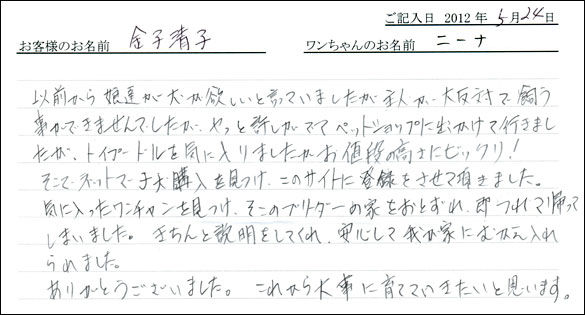 ご記入日 2012年 5月24日
お客様のお名前 金子清子 ワンちゃんのお名前 ニーナ
以前から娘達が犬が欲しいと言っていましたが主人が大反対で飼う
事ができませんでしたが、やっと許しがでてペットショップに出かけて行きまし
たが、トイプードルを気に入りましたがお値段の高さにビックリ!
そこでネットで子犬購入を見つけ、このサイトに登録をさせて頂きました。
気に入ったワンチャンを見つけ、そこのブリーダーの家をおとずれ、即つれて帰って
しまいました。きちんと説明をしてくれ、安心して我が家にむかえ入れ
られました。
ありがとうございました。これから大事に育てていきたいと思います。